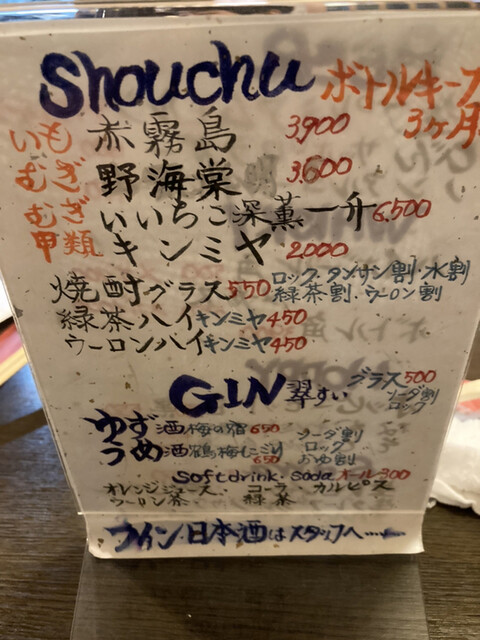 Shouchu ボトルキープ
3ヶ月
いも 赤霧島 3,900
むぎ 野海棠 3,600
むぎ いいちこ深薫一升 6,500
甲類 キンミヤ 2,000
焼酎グラス 550 ロック・タンサン割・水割
緑茶割・ウーロン割
緑茶ハイキンミヤ 450
ウーロンハイキンミヤ 450
GIN 翠すい グラス 500
ソーダ割
ロック
ゆず酒 梅の宿 650 ソーダ割
うめ酒 鶴梅にごり 650 ロック
お湯割
Softdrink・Soda オール 300
オレンジジュース・コーラ・カルピス
ウーロン茶・緑茶
ワイン・日本酒はスタッフへ……